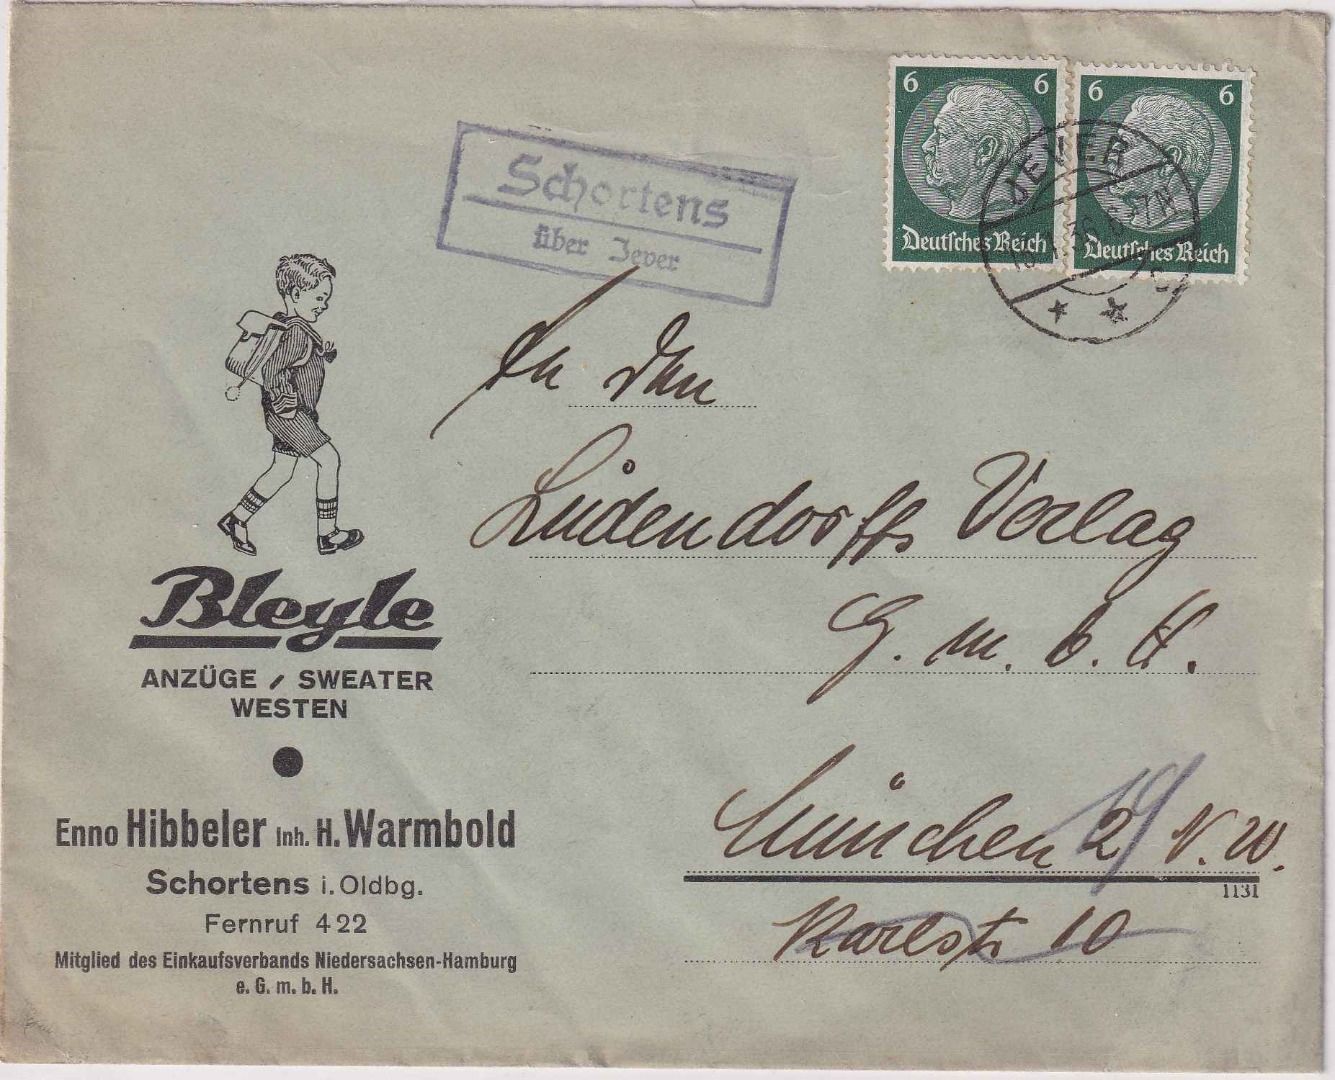 6 6
Deutsches Reich
6 6
Deutsches Reich
JEVER
Schortens
über Jever
An den
Ludendorffs Verlag
G. m. b. H.
München 2 N.W.
19
1131
Karlstr 10
Bleyle
ANZÜGE / SWEATER
WESTEN
Enno Hibbeler Inh. H. Warmbold
Schortens i. Oldbg.
Fernruf 422
Mitglied des Einkaufsverbands Niedersachsen-Hamburg
e. G. m. b. H.